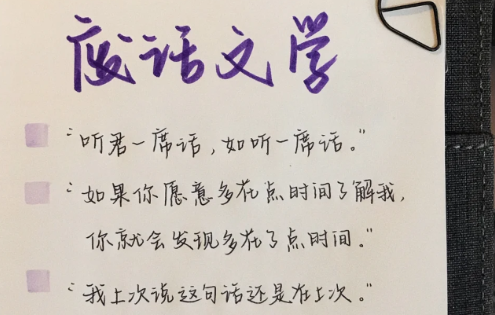 废话文学
“听君一席话，如听一席话。”
“如果你愿意多花点时间了解我，
你就会发现多花了点时间。”
“我上次说这句话还是在上次。”